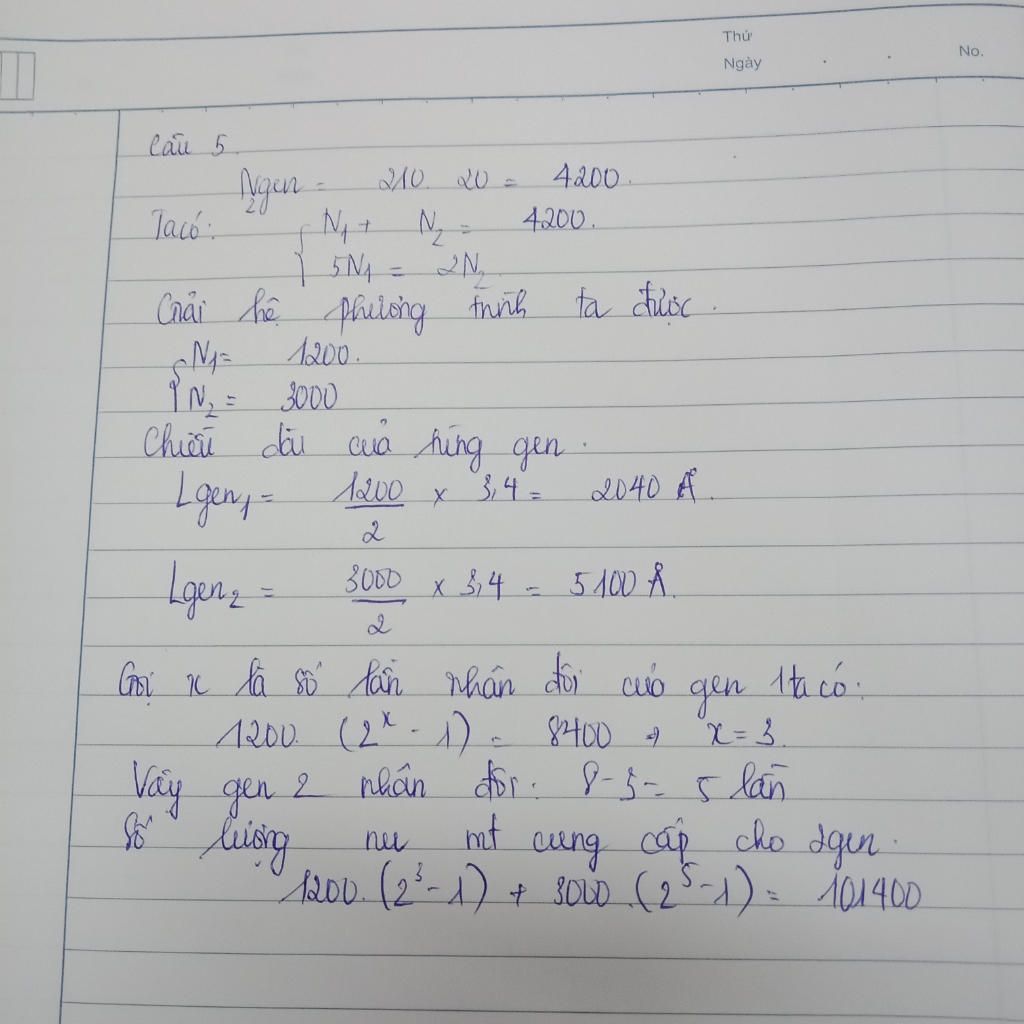 Thứ
Ngày . . No.
Câu 5
N2gen = 210. 20 = 4200.
Ta có: { N1 + N2 = 4200.
5N1 = 2N2
Giải hệ phương trình ta được.
{ N1 = 1200.
N2 = 3000
Chiều dài của từng gen.
Lgen1 = 1200/2 x 3,4 = 2040 Å.
Lgen2 = 3000/2 x 3,4 = 5100 Å.
Gọi x là số lần nhân đôi của gen 1 ta có:
1200. (2^x - 1) = 8400 => x = 3.
Vậy gen 2 nhân đôi: 8-3 = 5 lần
Số lượng nu mt cung cấp cho 2gen.
1200.(2^3-1) + 3000.(2^5-1) = 101400